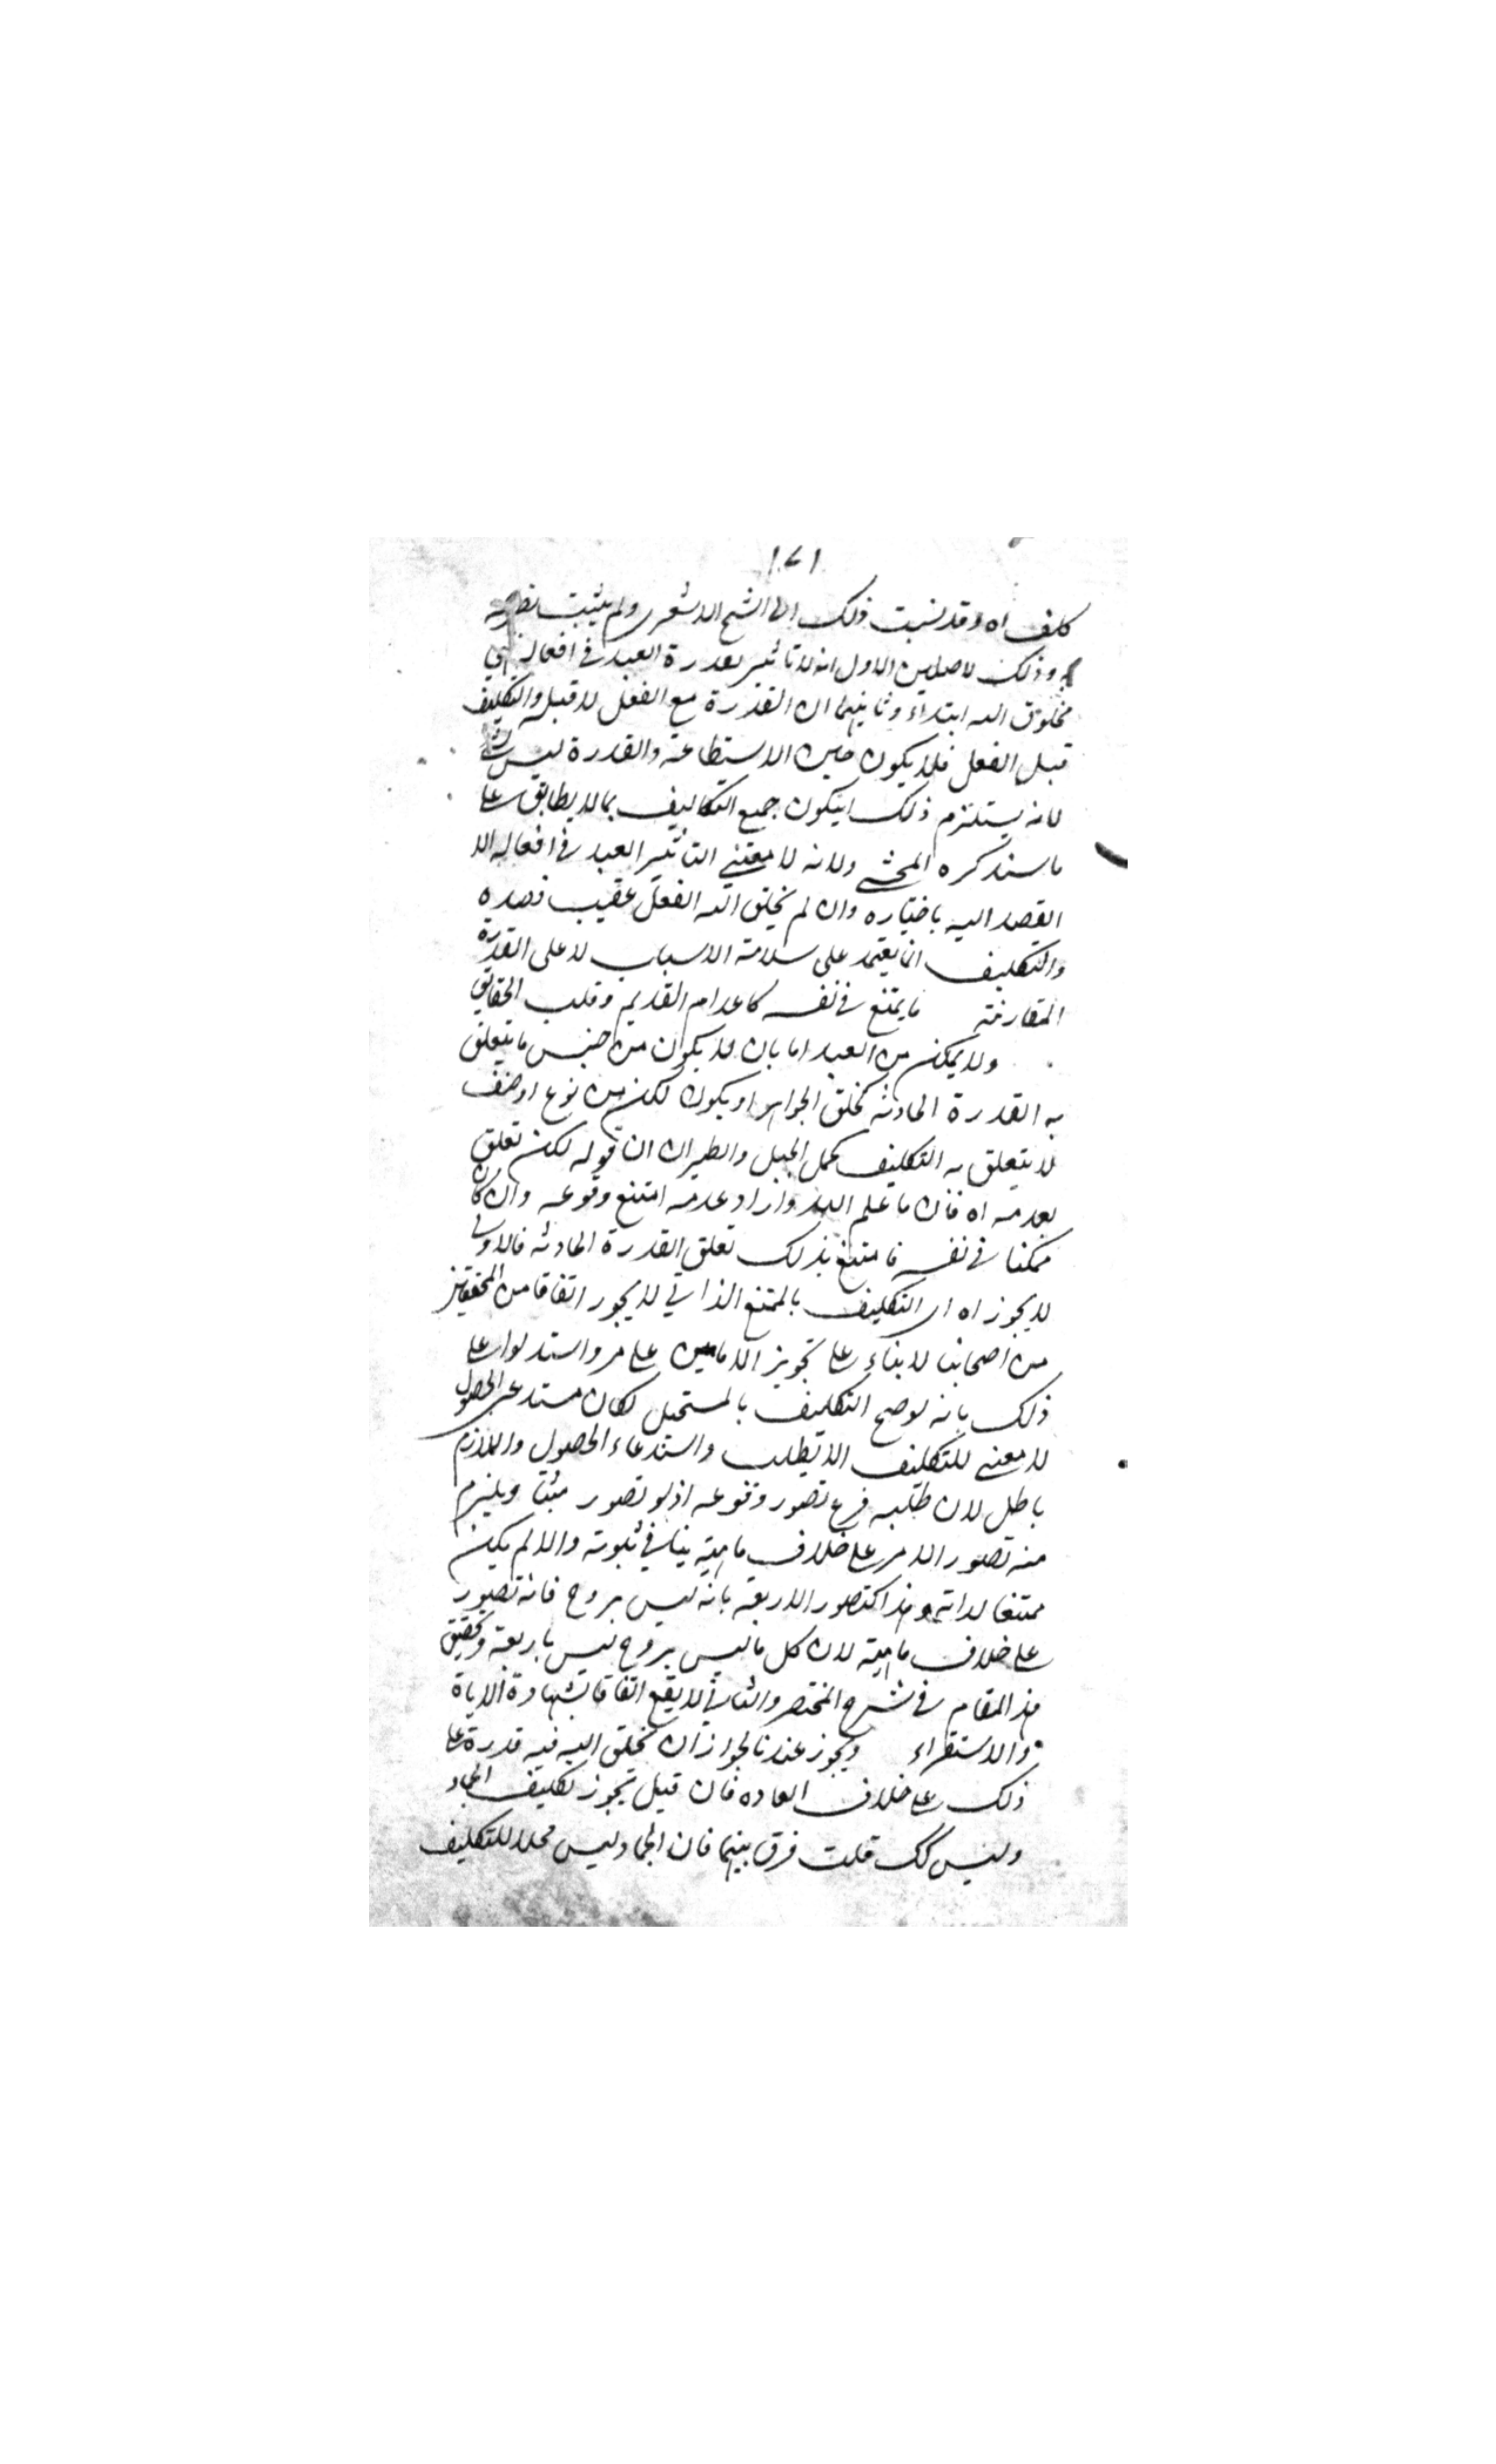 ١٧١
كلف اه وقد نسبت ذلك الى الشيخ الاشعرى ولم يثبت تصريحه
به وذلك لاصلين الاول انه لا تاثير لقدرة العبد فى افعاله فهى
مخلوق الله ابتداء وثانيهما ان القدرة مع الفعل لا قبله والتكليف
قبل الفعل فلا يكون حين الاستطاعة والقدرة ليس
لانه يستلزم ذلك ان يكون جميع التكاليف بما لا يطاق على
ما سنذكره المحشى ولانه لا معنى لتاثير العبد فى افعاله الا
القصد اليه باختياره وان لم يخلق الله الفعل عقيب قصده
والتكليف انما يعتمد على سلامة الاسباب لا على القدرة
المقارنة ما يمتنع فى نفسه كاعدام القديم وقلب الحقايق
ولا يمكن من العبد اما بان لا يكون من جنس ما يتعلق
به القدرة الحادثة كخلق الجواهر او يكون لكن من نوع او صنف
لا يتعلق به التكليف كحمل الجبل والطيران ان قوله لكن تعلق
بعدمه اه فان ما علم الله واراد عدمه امتنع وقوعه وان كان
ممكنا فى نفسه فامتنع بذلك تعلق القدرة الحادثة فالاولى
لا يجوز اه اى التكليف بالممتنع الذاتى لا يجوز اتفاقا من المحققين
من اصحابنا لا بناء على تجويز الامامين على مر واستدلوا على
ذلك بانه لو صح التكليف بالمستحيل لكان مستدعى الحصول
لا معنى للتكليف الا تطلب واستدعاء الحصول واللازم
باطل لان طلبه فرع تصور وقوعه اذ لو تصور مثبتا ويلزم
منه تصور الامر على خلاف ماهيته ينافى ثبوته والا لم يكن
ممتنعا لذاته وهذا كتصور الاربعة بانه ليس بزوج فانه تصور
على خلاف ماهيته لان كل ما ليس بزوج ليس باربعة وتحقيق
هذا المقام فى شرح المختصر والثانى لا يقع اتفاقا بشهادة الاياة
والاستقراء ويجوز عندنا لجواز ان يخلق الله فيه قدرة على
ذلك على خلاف العاده فان قيل يجوز تكليف الجماد
وليس كك قلت فرق بينهما فان الجماد ليس محلا للتكليف